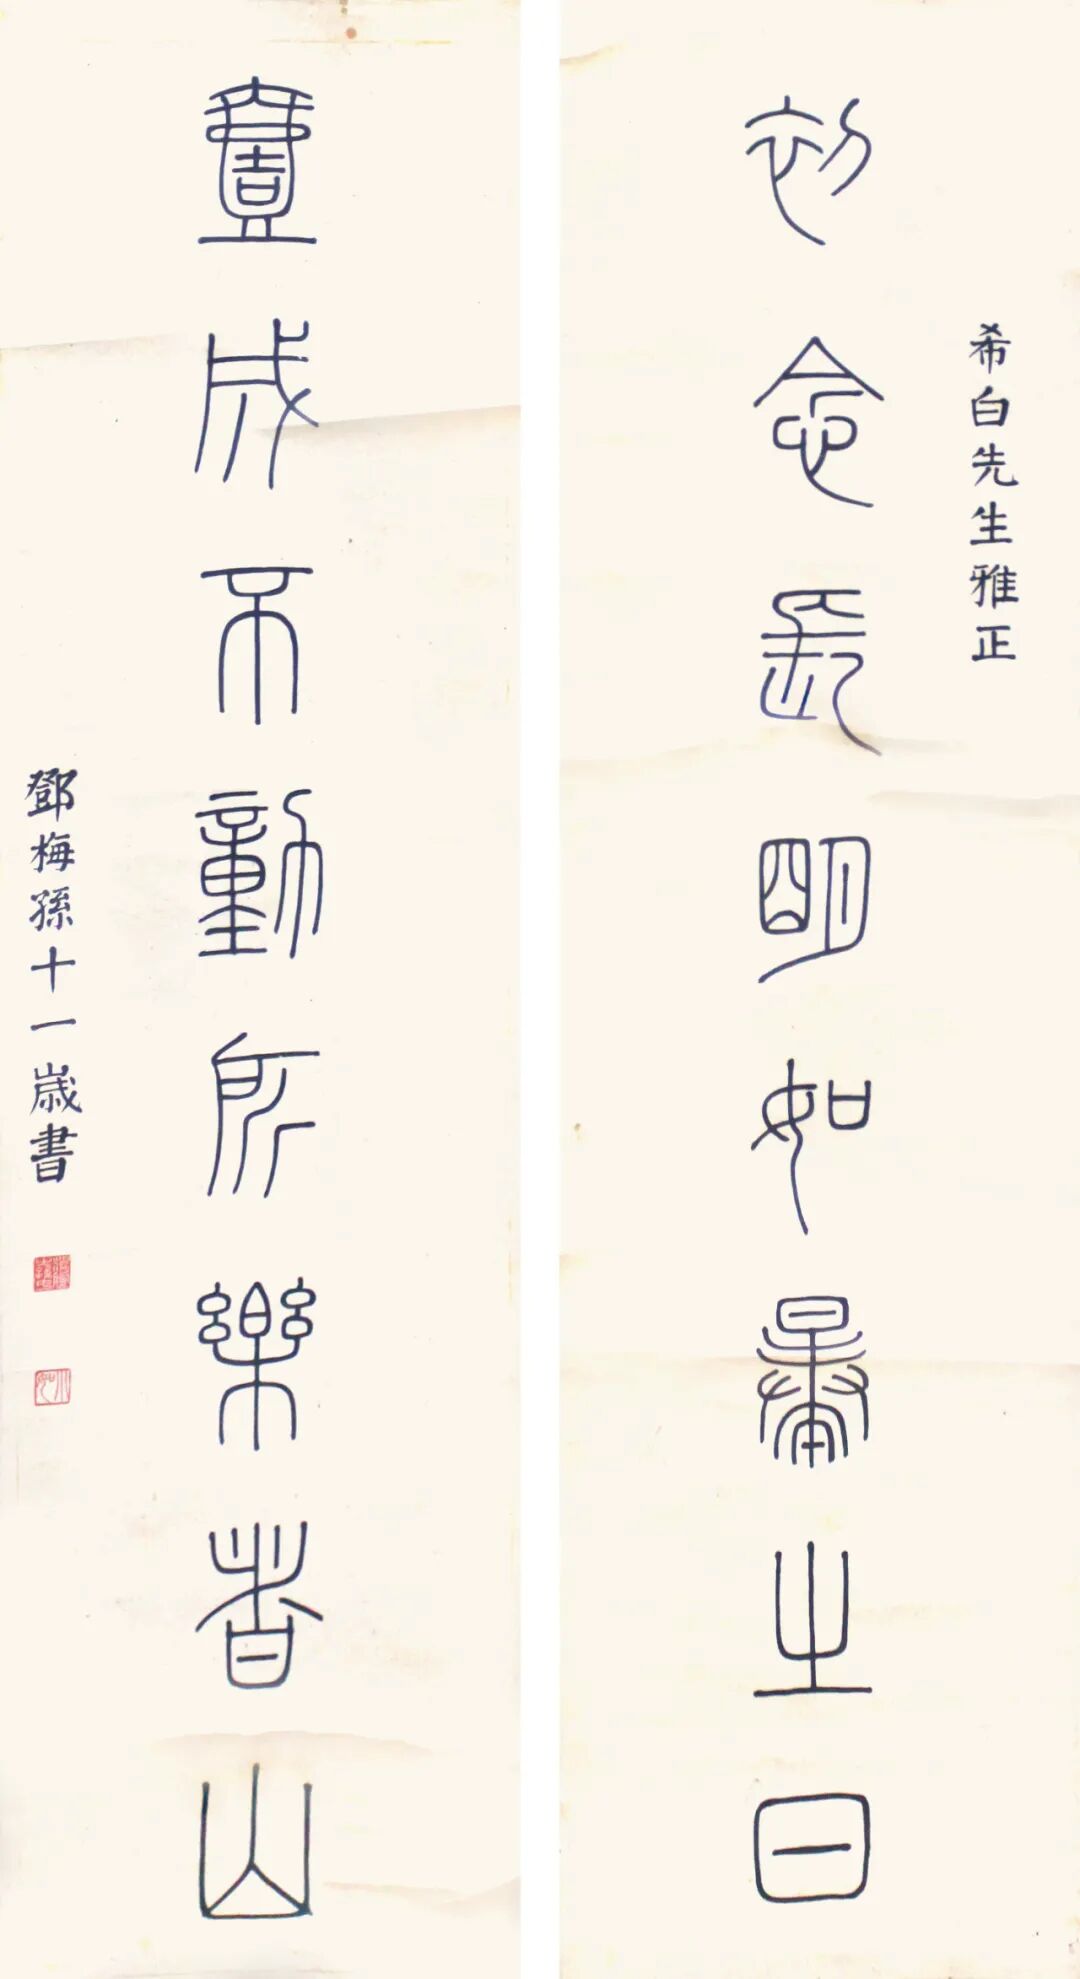 希白先生雅正
初念長明如暴之日
壹成不動所樂者山
鄧梅孫十一歲書